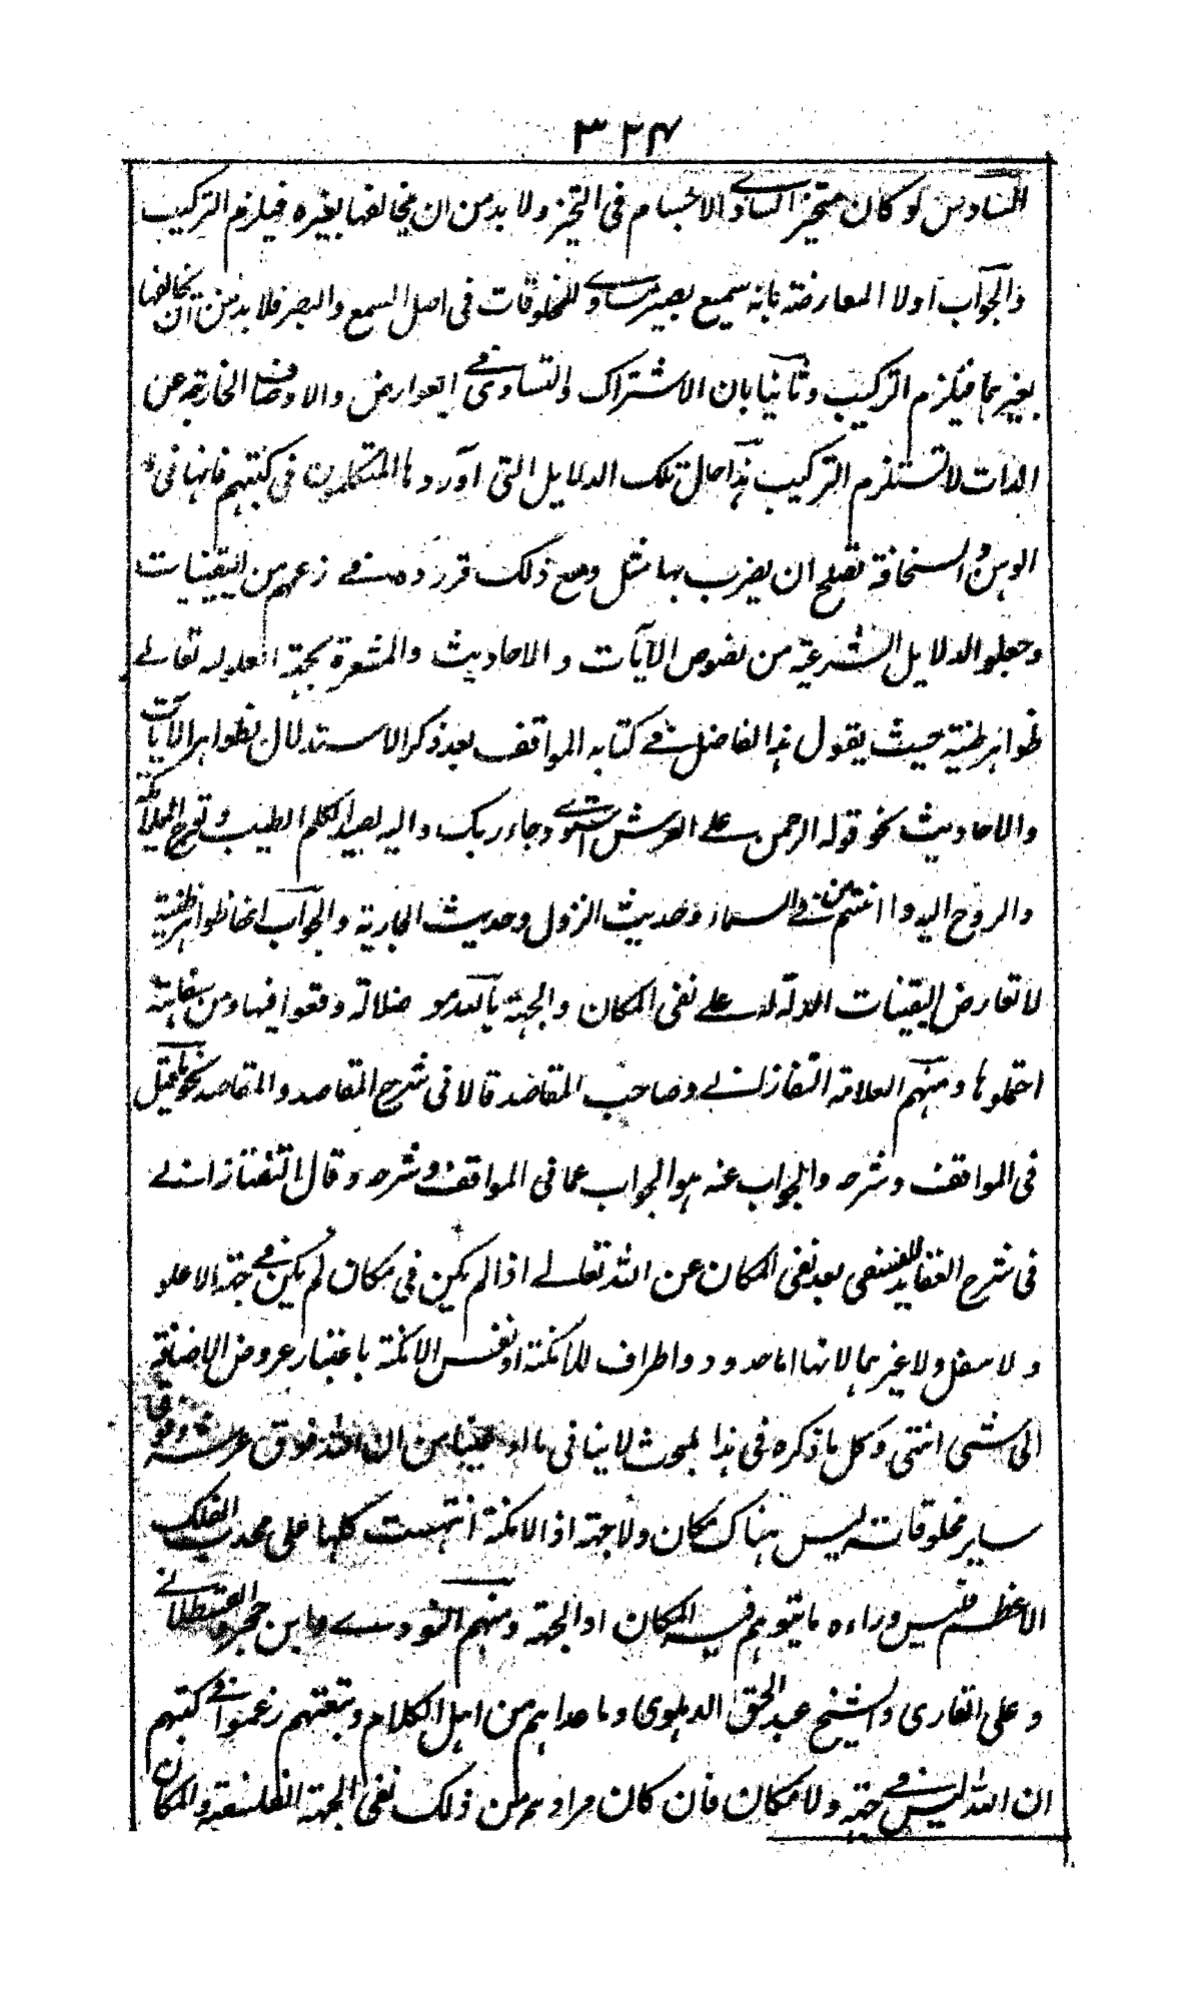 ٣٢٤
السادس لو كان متحيزا لساوى الاجسام فى التحيز ولا بد من ان يخالفها بغيره فيلزم التركيب
والجواب اولا المعارضة بانه سميع بصير مساوى للمخلوقات فى اصل السمع والبصر فلا بد من ان يخالفها
بغيرهما فيلزم التركيب وثانيا بان الاشتراك والتساوى فى العوارض والاوصاف الخارجة عن
الذات لا تستلزم التركيب هذا حال تلك الدلايل التى اوردها المتكلمون فى كتبهم فانها فى
الوهن والسخافة تصلح ان يضرب بها مثل ومع ذلك قرروه فى زعمهم من اليقينيات
وجعلوا الدلايل الشرعية من نصوص الآيات والاحاديث والمشعرة بجهة العلو له تعالى
ظواهر ظنية حيث يقول هذا الفاضل فى كتابه المواقف بعد ذكر الاستدلال بظواهر الآيات
والاحاديث نحو قوله الرحمن على العرش استوى وجاء ربك واليه يصعد الكلم الطيب وتعرج الملائكة
والروح اليه وا امنتم من فى السماء وحديث النزول وحديث الجارية والجواب انها ظواهر ظنية
لا تعارض اليقينات الدالة على نفى المكان والجهة ضلالة وقعوا فيها ومن سفاهة
احتملوها ومنهم العلامة التفتازانى وصاحب المقاصد قالا فى شرح المقاصد والمقاصد نحو ما قيل
فى المواقف وشرحه والجواب عنه هو الجواب عما فى المواقف وشرحه وقال التفتازانى
فى شرح العقايد للنسفى بعد نفى المكان عن الله تعالى اذا لم يكن فى مكان لم يكن فى جهة لا علو
ولا سفل ولا غيرهما لانها اما حدود واطراف للامكنة او نفس الامكنة باعتبار عروض الاضافة
الى شئ انتهى وكل ما ذكره فى هذا المبحث لا ينافى ما من ان الله فوق عرشه وفوق
ساير مخلوقاته ليس هناك مكان ولا جهة اذ الامكنة انتهت كلها على محدب الفلك
الاعظم فليس وراءه ما يتوهم فيه المكان او الجهة ومنهم النووى وابن حجر والقسطلانى
وعلى القارى والشيخ عبد الحق الدهلوى وما عداهم من اهل الكلام وتبعتهم زعموا فى كتبهم
ان الله ليس فى جهة ولا مكان فان كان مرادهم من ذلك نفى الجهة الفلسفة والمكان